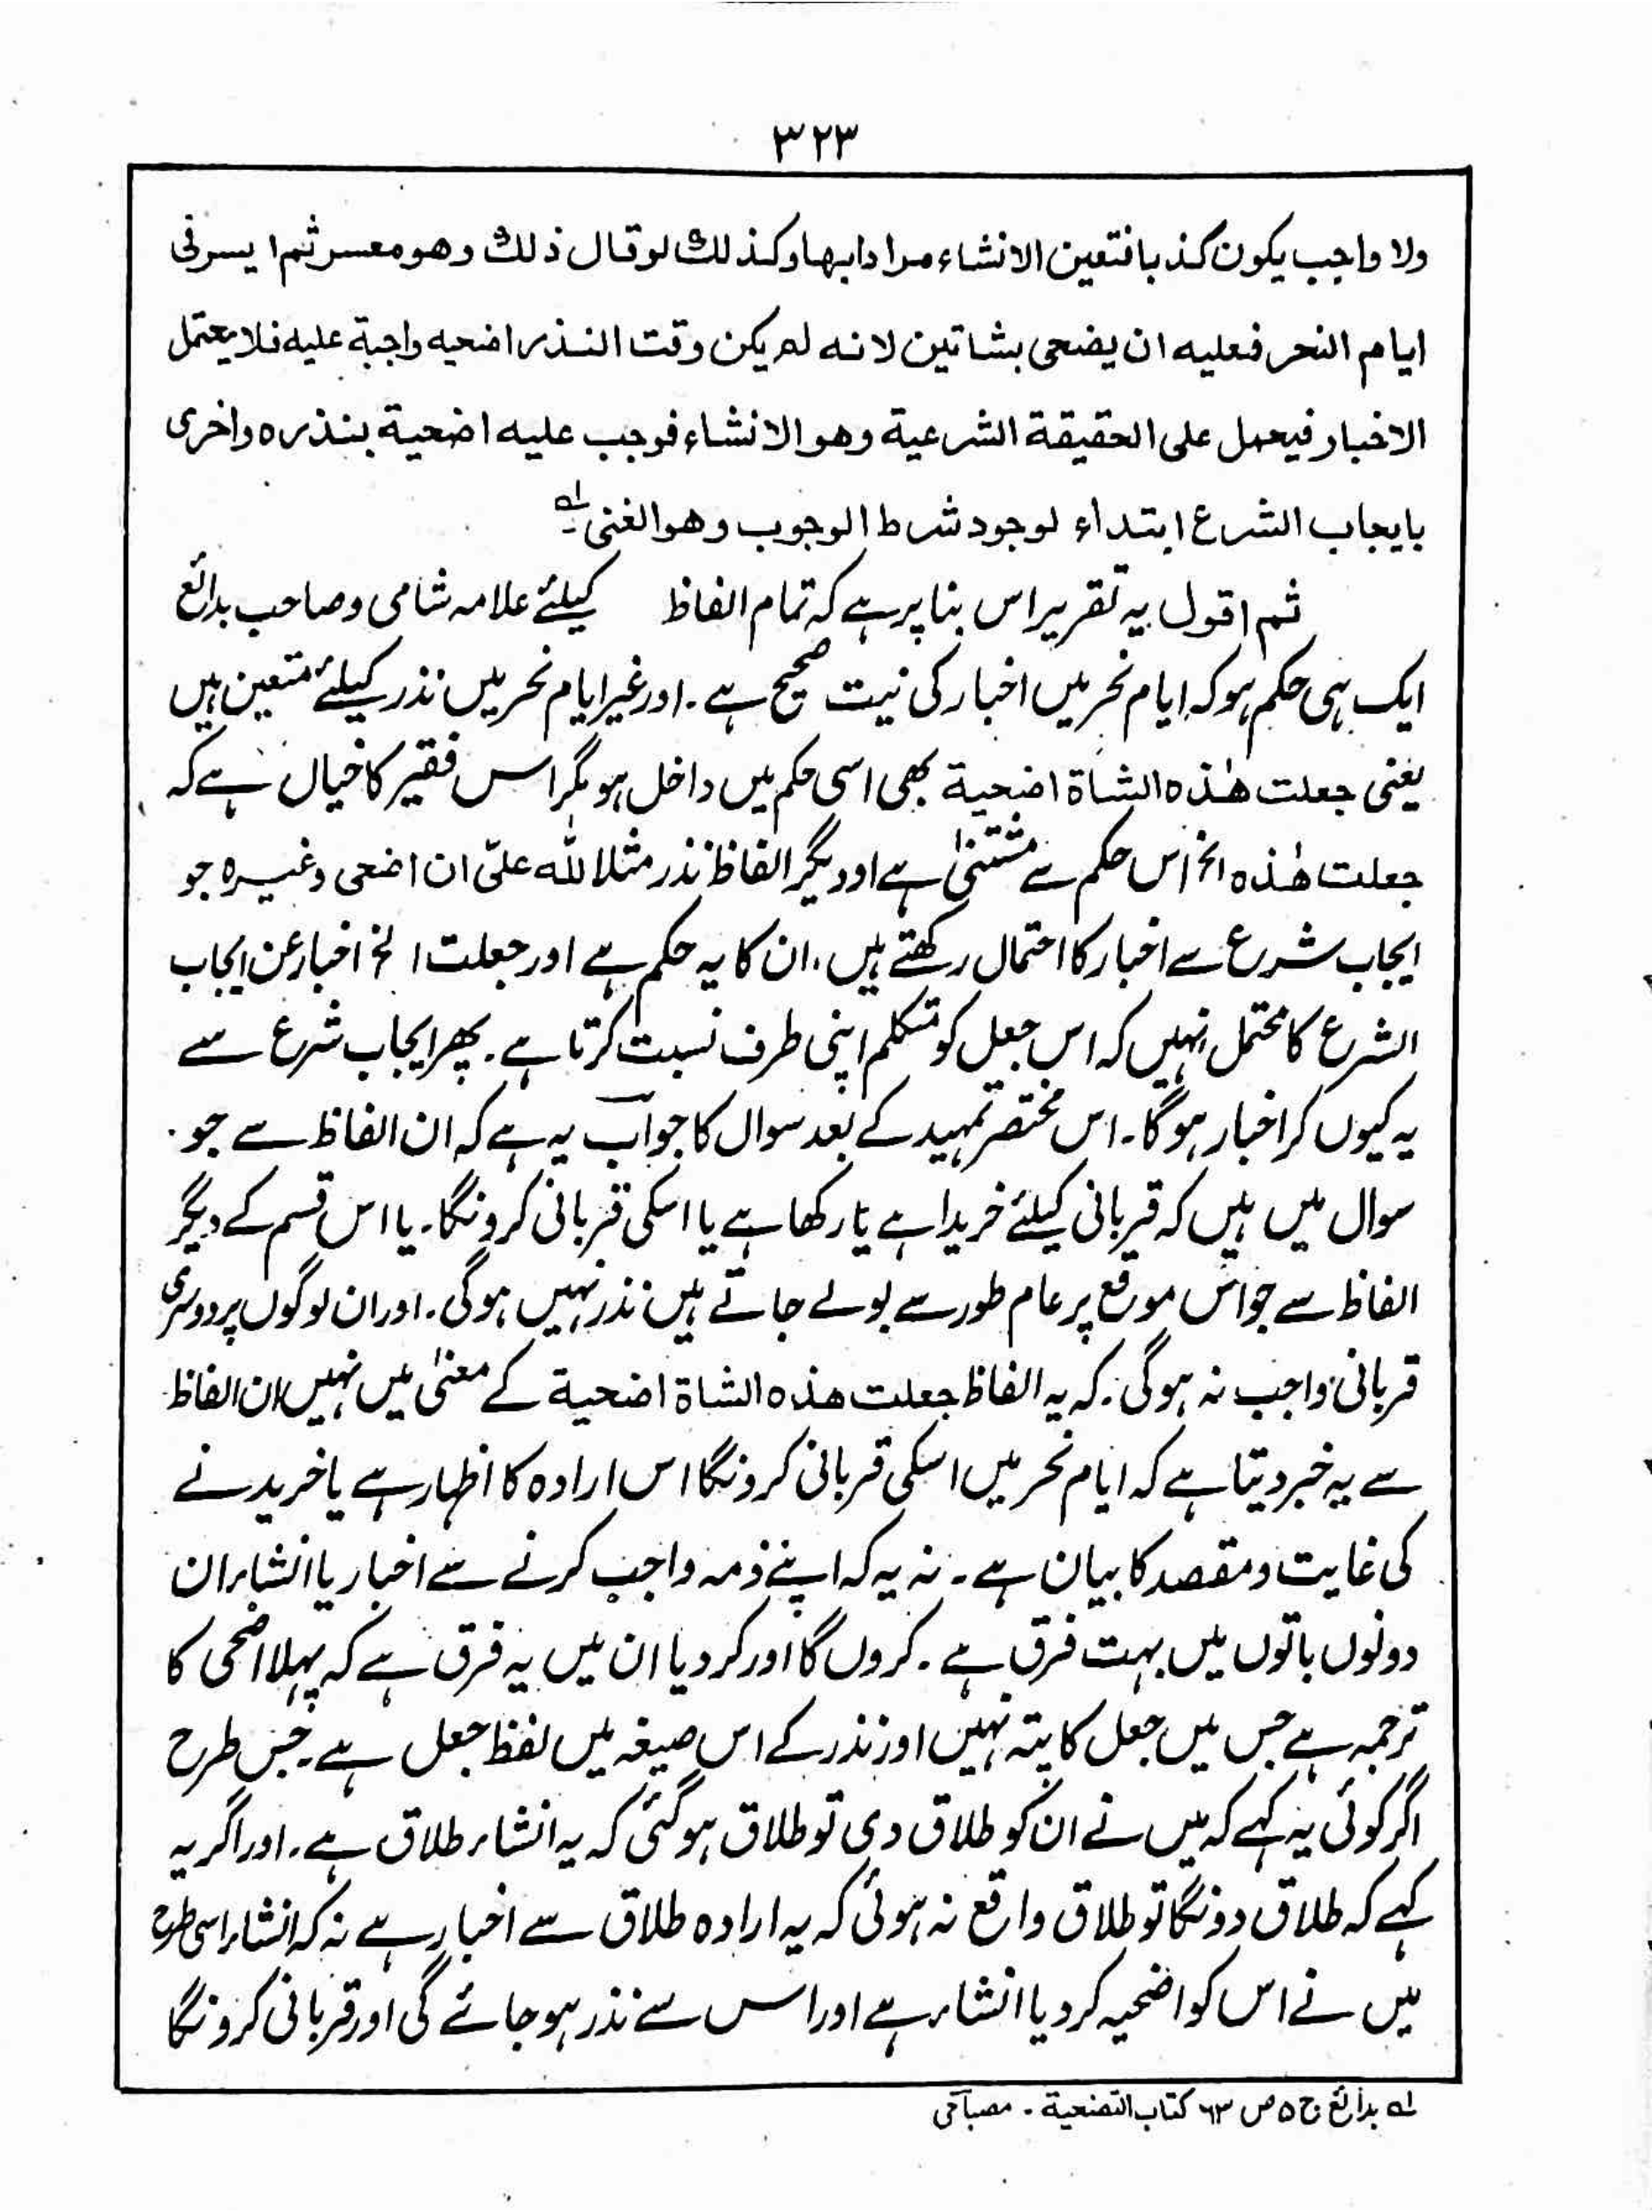 ۳۲۳
ولا واجب يكون كذبا فتعين الانشاء مرادا بها وكذلك لو قال ذلك وهو معسر ثم ايسر فى
ايام النحر فعليه ان يضحى بشاتين لانه لم يكن وقت النذر اضحيه واجبة عليه فلا يحتمل
الاخبار فيحمل على الحقيقة الشرعية وهو الانشاء فوجب عليه اضحية بنذره واخرى
بايجاب الشرع ابتداء لوجود شرط الوجوب وهو الغنى۔ لہ
ثم اقول یہ تقریر اس بنا پر ہے کہ تمام الفاظ کیلئے علامہ شامی و صاحب بدائع
ایک ہی حکم ہو کہ ایام نحر میں اخبار کی نیت صحیح ہے۔ اور غیر ایام نحر میں نذر کیلئے متعین ہیں
یعنی جعلت هٰذه الشاة اضحية بھی اسی حکم میں داخل ہو مگر اس فقیر کا خیال ہے کہ
جعلت هٰذه الخ اس حکم سے مستثنیٰ ہے اور دیگر الفاظ نذر مثلا لله علىّ ان اضحى وغیرہ جو
ایجاب شرع سے اخبار کا احتمال رکھتے ہیں، ان کا یہ حکم ہے اور جعلت الخ اخبار عن ایجاب
الشرع کا محتمل نہیں کہ اس جعل کو متکلم اپنی طرف نسبت کرتا ہے۔ پھر ایجاب شرع سے
یہ کیوں کر اخبار ہوگا۔ اس مختصر تمہید کے بعد سوال کا جواب یہ ہے کہ ان الفاظ سے جو
سوال میں ہیں کہ قربانی کیلئے خریدا ہے یا رکھا ہے یا اسکی قربانی کرونگا۔ یا اس قسم کے دیگر
الفاظ سے جو اس موقع پر عام طور سے بولے جاتے ہیں نذر نہیں ہوگی۔ اور ان لوگوں پر دوسری
قربانی واجب نہ ہوگی۔ کہ یہ الفاظ جعلت هذه الشاة اضحية کے معنیٰ میں نہیں ان الفاظ
سے یہ خبر دیتا ہے کہ ایام نحر میں اسکی قربانی کرونگا اس ارادہ کا اظہار ہے یا خریدنے
کی غایت و مقصد کا بیان ہے۔ نہ یہ کہ اپنے ذمہ واجب کرنے سے اخبار یا انشاء ان
دونوں باتوں میں بہت فرق ہے۔ کروں گا اور کر دیا ان میں یہ فرق ہے کہ پہلا اضحی کا
ترجمہ ہے جس میں جعل کا پتہ نہیں اور نذر کے اس صیغہ میں لفظ جعل ہے۔ جس طرح
اگر کوئی یہ کہے کہ میں نے ان کو طلاق دی تو طلاق ہوگئی کہ یہ انشاء طلاق ہے۔ اور اگر یہ
کہے کہ طلاق دونگا تو طلاق واقع نہ ہوئی کہ یہ ارادہ طلاق سے اخبار ہے نہ کہ انشاء اسی طرح
میں نے اس کو اضحیہ کر دیا انشاء ہے اور اس سے نذر ہو جائے گی اور قربانی کرونگا
لہ بدائع ج ۵ ص ۶۳ کتاب التضحية۔ مصباحی